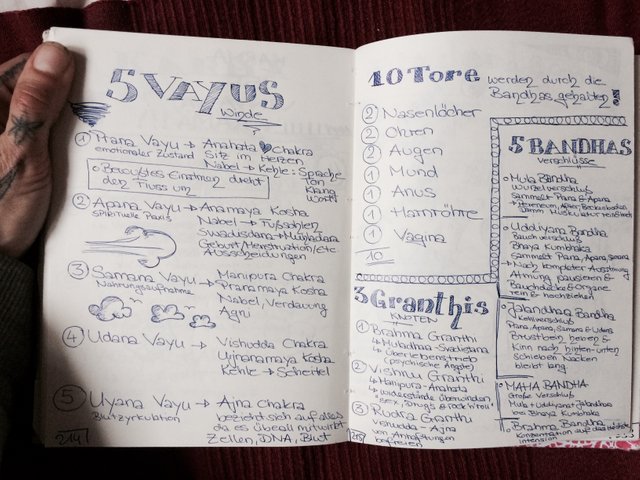 5 VAYUS
Winde
① Prana Vayu → Anahata ♥ Chakra
emotionaler Zustand Sitz im Herzen
Nabel → Kehle: Sprache
Ton
Klang
Wort
Bewußtes Einatmen dreht
den Fluss um
② Apana Vayu → Anamaya Kosha
spirituelle Praxis Nabel → Fußsohlen
Swadisdana → Muladara
Geburt/Menstruation/etc
Ausscheidungen
③ Samana Vayu → Manipura Chakra
Nahrungsaufnahme Pranamaya Kosha
Nabel, Verdauung
Agni
④ Udana Vayu → Vishudda Chakra
Kosha
Kehle → Scheitel
⑤ Uyana Vayu → Ajna Chakra
Blutzyrkulation bezieht sich auf alles
da es überall mitwirkt
Zellen, DNA, Blut
214
10 Tore werden durch die
Bandhas gehalten!
② Nasenlöcher
② Ohren
② Augen
① Mund
① Anus
① Harnröhre
① Vagina
10
3 Granthis
KNOTEN
① Brahma Granthi
↳ Muladhara-Svadistana
↳ Überlebenstrieb
(psychische Ängste)
② Vishnu Granthi
↳ Manipura-Anahata
↳ widerstände überwinden
Sex, Drugs & rock'n'roll
③ Rudra Granthi
Vishudda - Ajna
von Anhaftungen
befreien
5 BANDHAS
verschlüsse
Mula Bandha
Wurzelverschluß
Sammelt Prana & Apana
Uddiyana Bandha
Bauchverschluß
Bhaya Kumbhaka
Sammelt Prana, Apana, Samana
→ Nach kompletter Ausatmung
Atmung pausieren &
Bauchdecke & Organe
rein & hochziehen
Jalandhara Bandha
Kehlverschluß
Prana, Apana, Samana & Udana
Brustbein heben &
Kinn nach hinten-unten
schieben Nacken
bleibt lang
MAHA BANDHA
Große Verschluß
Mula + Uddiyana + Jalandhara
bei Bhaya Kumbhaka
Brahma Bandha
Konzentration auf das